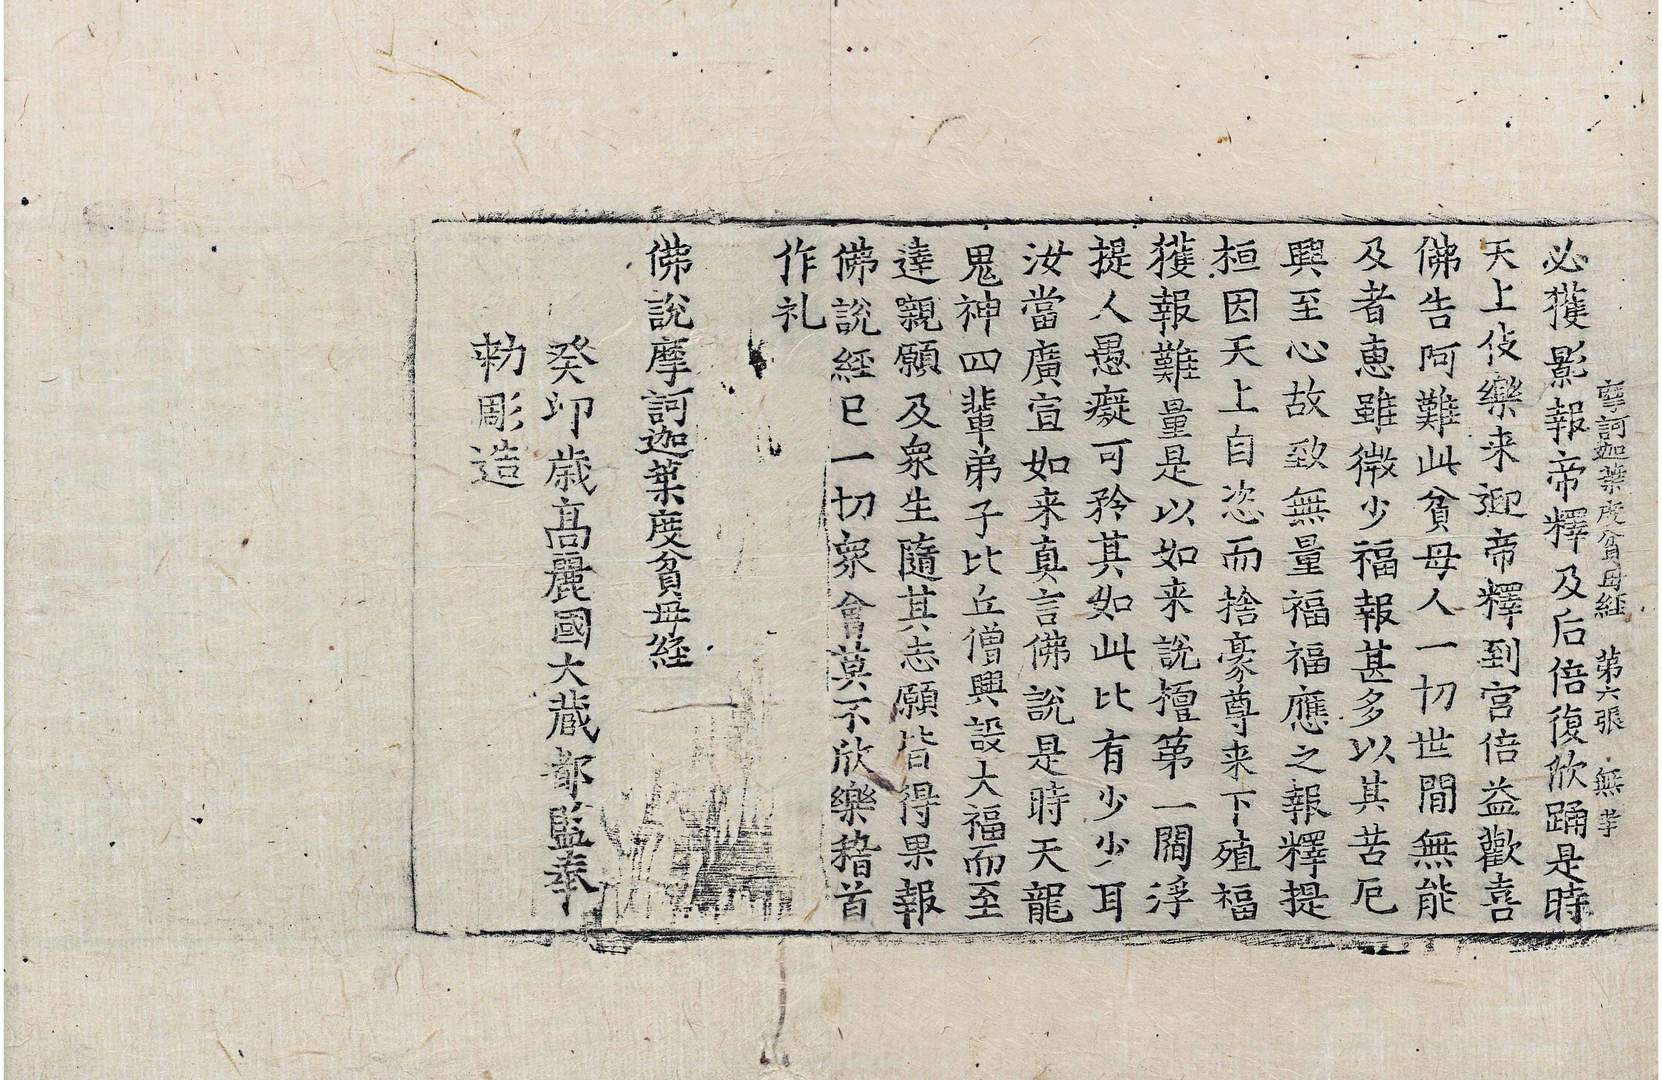 摩訶迦葉度貧母経 第六張 無
必獲影報帝釋及后倍復欣踊是時
天上伎樂来迎帝釋到宫倍益歡喜
佛告阿難此貧母人一切世閒無能
及者惠雖微少福報甚多以其苦厄
興至心故致無量福福應之報釋提
桓因天上自恣而捨豪尊来下殖福
獲報難量是以如来說檀第一閻浮
提人愚癡可矜其如此比有少少耳
汝當廣宣如来真言佛說是時天龍
鬼神四輩弟子比丘僧興設大福而至
達嚫願及衆生隨其志願皆得果報
佛說經已一切衆會莫不欣樂稽首
作礼
佛說摩訶迦葉度貧母経
癸卯歳髙麗國大蔵都監奉
勅彫造